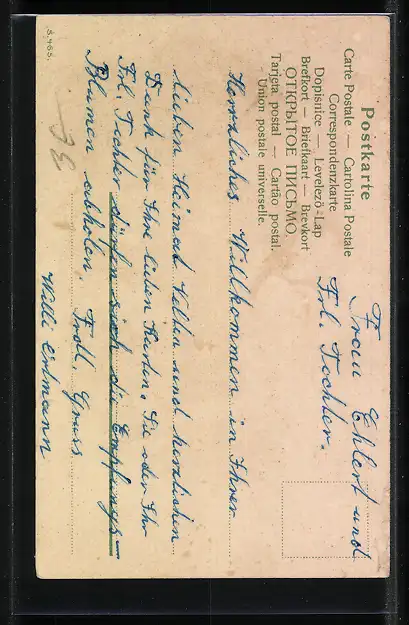 Postkarte
Carte Postale — Cartolina Postale
Correspondenzkarte
Dopisnice — Levelező-Lap
Brefkort — Briefkaart — Brevkort
ОТКРЫТОЕ ПИСЬМО
Tarjeta postal — Cartão postal.
Union postale universelle.
Frau Ehlert und
Frl. Tochter.
Herzliches Willkommen in Ihrer
lieben Heimat Velten und herzlichen
Dank für Ihre lieben Karten. Sie oder Ihr
Frl. Tochter dürfen sich die Empfangs-
Blumen abholen. Frdl. Gruss
Willi Erdmann
S. 465.